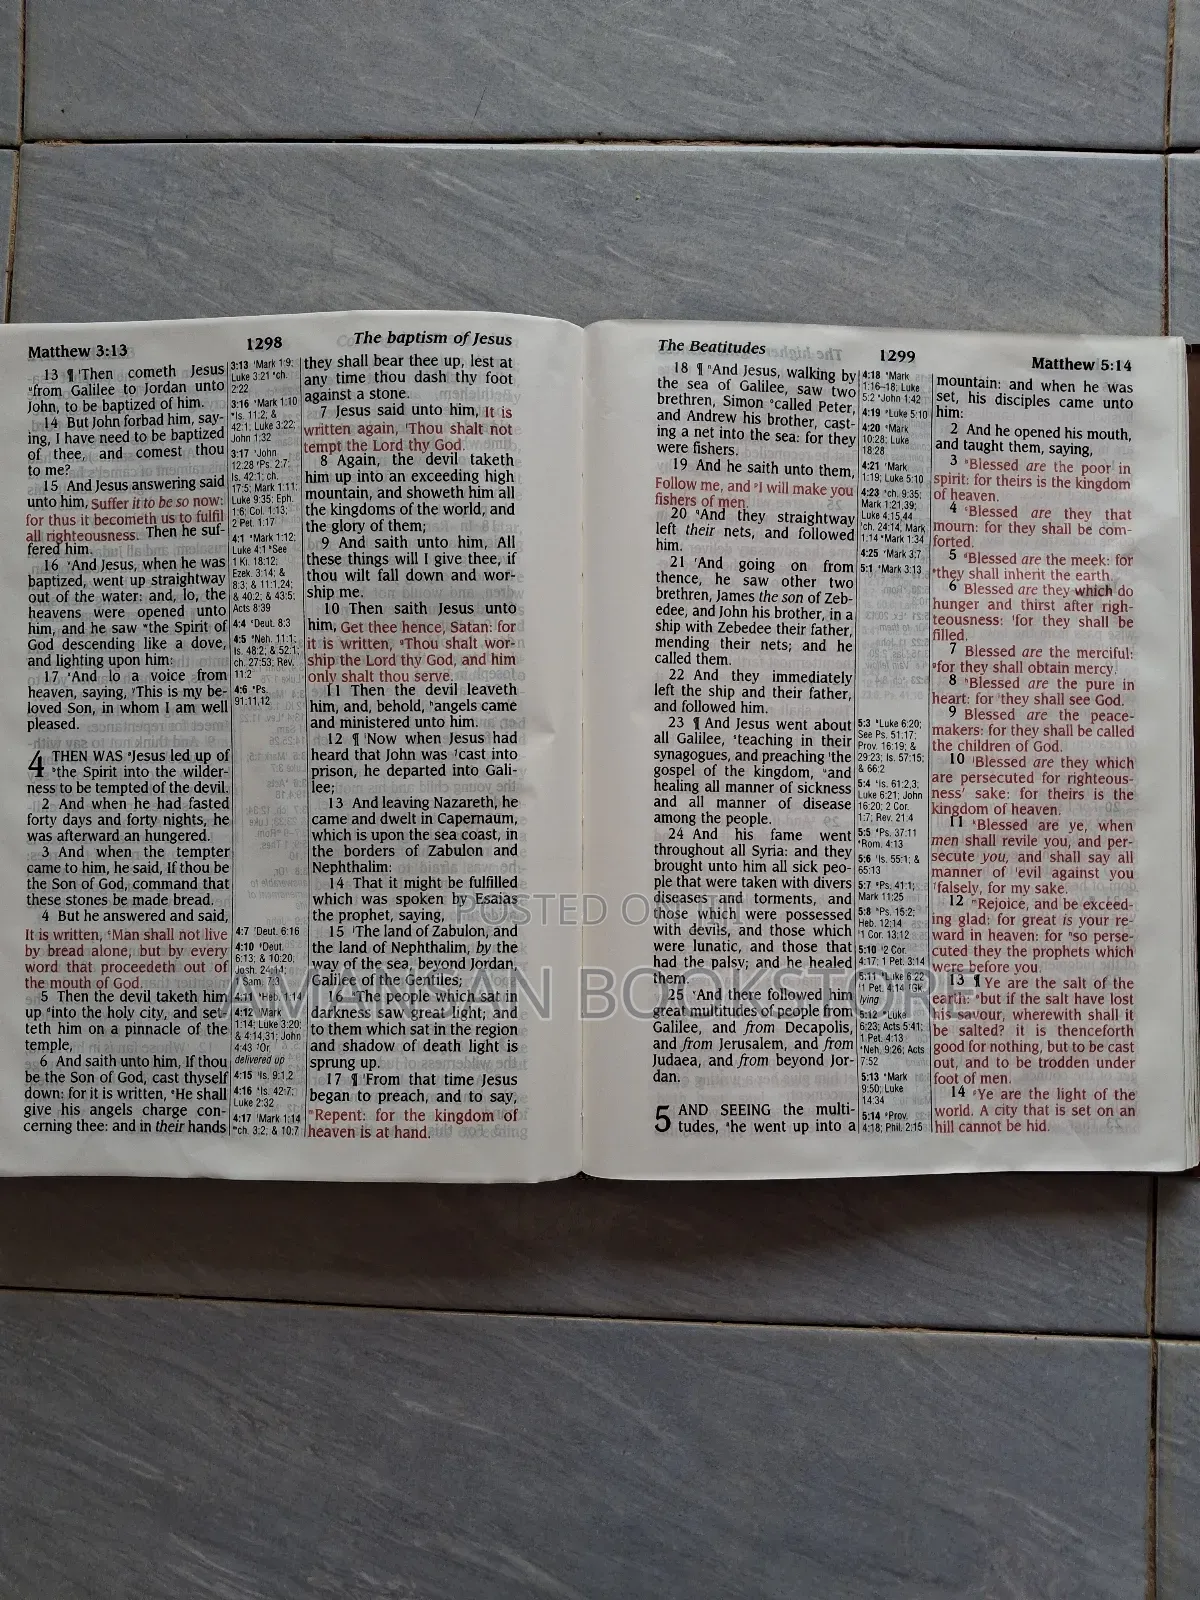 Matthew 3:13
1298
The baptism of Jesus
13 ¶ Then cometh Jesus
from Galilee to Jordan unto
John, to be baptized of him.
14 But John forbad him, say-
ing, I have need to be baptized
of thee, and comest thou
to me?
15 And Jesus answering said
unto him, Suffer it to be so now:
for thus it becometh us to fulfil
all righteousness. Then he suf-
fered him.
16 And Jesus, when he was
baptized, went up straightway
out of the water: and, lo, the
heavens were opened unto
him, and he saw the Spirit of
God descending like a dove,
and lighting upon him:
17 And lo a voice from
heaven, saying, This is my be-
loved Son, in whom I am well
pleased.
4 THEN WAS Jesus led up of
the Spirit into the wilder-
ness to be tempted of the devil.
2 And when he had fasted
forty days and forty nights, he
was afterward an hungered.
3 And when the tempter
came to him, he said, If thou be
the Son of God, command that
these stones be made bread.
4 But he answered and said,
It is written, Man shall not live
by bread alone, but by every
word that proceedeth out of
the mouth of God.
5 Then the devil taketh him
up into the holy city, and set-
teth him on a pinnacle of the
temple,
6 And saith unto him, If thou
be the Son of God, cast thyself
down: for it is written, He shall
give his angels charge con-
cerning thee: and in their hands
3:13 Mark 1:9;
Luke 3:21 ch.
2:22
3:16 Mark 1:10
Is. 11:2; &
42:1; Luke 3:22;
John 1:32
3:17 John
12:28 Ps. 2:7;
Is. 42:1; ch.
17:5; Mark 1:11;
Luke 9:35; Eph.
1:6; Col. 1:13;
2 Pet. 1:17
4:1 Mark 1:12;
Luke 4:1 See
1 Ki. 18:12;
Ezek. 3:14; &
8:3; & 11:1,24;
& 40:2; & 43:5;
Acts 8:39
4:4 Deut. 8:3
4:5 Neh. 11:1;
Is. 48:2; & 52:1;
ch. 27:53; Rev.
11:2
4:6 Ps.
91:11,12
4:7 Deut. 6:16
4:10 Deut.
6:13; & 10:20;
Josh. 24:14;
1 Sam. 7:3
4:11 Heb. 1:14
4:12 Mark
1:14; Luke 3:20;
& 4:14,31; John
4:43 Or,
delivered up
4:15 Is. 9:1,2
4:16 Is. 42:7;
Luke 2:32
4:17 Mark 1:14
ch. 3:2; & 10:7
they shall bear thee up, lest at
any time thou dash thy foot
against a stone.
7 Jesus said unto him, It is
written again, Thou shalt not
tempt the Lord thy God.
8 Again, the devil taketh
him up into an exceeding high
mountain, and showeth him all
the kingdoms of the world, and
the glory of them;
9 And saith unto him, All
these things will I give thee, if
thou wilt fall down and wor-
ship me.
10 Then saith Jesus unto
him, Get thee hence, Satan: for
it is written, Thou shalt wor-
ship the Lord thy God, and him
only shalt thou serve.
11 Then the devil leaveth
him, and, behold, angels came
and ministered unto him.
12 ¶ Now when Jesus had
heard that John was cast into
prison, he departed into Gali-
lee;
13 And leaving Nazareth, he
came and dwelt in Capernaum,
which is upon the sea coast, in
the borders of Zabulon and
Nephthalim:
14 That it might be fulfilled
which was spoken by Esaias
the prophet, saying,
15 The land of Zabulon, and
the land of Nephthalim, by the
way of the sea, beyond Jordan,
Galilee of the Gentiles;
16 The people which sat in
darkness saw great light; and
to them which sat in the region
and shadow of death light is
sprung up.
17 ¶ From that time Jesus
began to preach, and to say,
Repent: for the kingdom of
heaven is at hand.
The Beatitudes
1299
Matthew 5:14
18 ¶ And Jesus, walking by
the sea of Galilee, saw two
brethren, Simon called Peter,
and Andrew his brother, cast-
ing a net into the sea: for they
were fishers.
19 And he saith unto them,
Follow me, and I will make you
fishers of men.
20 And they straightway
left their nets, and followed
him.
21 And going on from
thence, he saw other two
brethren, James the son of Zeb-
edee, and John his brother, in a
ship with Zebedee their father,
mending their nets; and he
called them.
22 And they immediately
left the ship and their father,
and followed him.
23 ¶ And Jesus went about
all Galilee, teaching in their
synagogues, and preaching the
gospel of the kingdom, and
healing all manner of sickness
and all manner of disease
among the people.
24 And his fame went
throughout all Syria: and they
brought unto him all sick peo-
ple that were taken with divers
diseases and torments, and
those which were possessed
with devils, and those which
were lunatic, and those that
had the palsy; and he healed
them.
25 And there followed him
great multitudes of people from
Galilee, and from Decapolis,
and from Jerusalem, and from
Judaea, and from beyond Jor-
dan.
5 AND SEEING the multi-
tudes, he went up into a
4:18 Mark
1:16-18; Luke
5:2 John 1:42
4:19 Luke 5:10
4:20 Mark
10:28; Luke
18:28
4:21 Mark
1:19; Luke 5:10
4:23 ch. 9:35;
Mark 1:21,39;
Luke 4:15,44
ch. 24:14, Mark
1:14 Mark 1:34
4:25 Mark 3:7
5:1 Mark 3:13
5:3 Luke 6:20;
See Ps. 51:17;
Prov. 16:19; &
29:23; Is. 57:15;
& 66:2
5:4 Is. 61:2,3;
Luke 6:21; John
16:20; 2 Cor.
1:7; Rev. 21:4
5:5 Ps. 37:11
Rom. 4:13
5:6 Is. 55:1; &
65:13
5:7 Ps. 41:1;
Mark 11:25
5:8 Ps. 15:2;
Heb. 12:14
1 Cor. 13:12
5:10 2 Cor.
4:17; 1 Pet. 3:14
5:11 Luke 6:22
1 Pet. 4:14 Gk
lying
5:12 Luke
6:23; Acts 5:41;
1 Pet. 4:13
Neh. 9:26; Acts
7:52
5:13 Mark
9:50; Luke
14:34
5:14 Prov.
4:18; Phil. 2:15
mountain: and when he was
set, his disciples came unto
him:
2 And he opened his mouth,
and taught them, saying,
3 Blessed are the poor in
spirit: for theirs is the kingdom
of heaven.
4 Blessed are they that
mourn: for they shall be com-
forted.
5 Blessed are the meek: for
they shall inherit the earth.
6 Blessed are they which do
hunger and thirst after righ-
teousness: for they shall be
filled.
7 Blessed are the merciful:
for they shall obtain mercy.
8 Blessed are the pure in
heart: for they shall see God.
9 Blessed are the peace-
makers: for they shall be called
the children of God.
10 Blessed are they which
are persecuted for righteous-
ness' sake: for theirs is the
kingdom of heaven.
11 Blessed are ye, when
men shall revile you, and per-
secute you, and shall say all
manner of evil against you
falsely, for my sake.
12 Rejoice, and be exceed-
ing glad: for great is your re-
ward in heaven: for so perse-
cuted they the prophets which
were before you.
13 ¶ Ye are the salt of the
earth: but if the salt have lost
his savour, wherewith shall it
be salted? it is thenceforth
good for nothing, but to be cast
out, and to be trodden under
foot of men.
14 Ye are the light of the
world. A city that is set on an
hill cannot be hid.
POSTED ON
AMANSAN BOOKSTORE